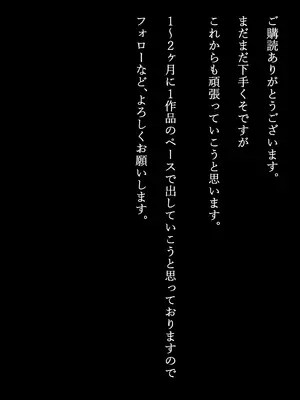 ご購読ありがとうございます。
まだまだ下手くそですが
これからも頑張っていこうと思います。
1～2ヶ月に1作品のペースで出していこうと思っておりますので
フォローなど、よろしくお願いします。